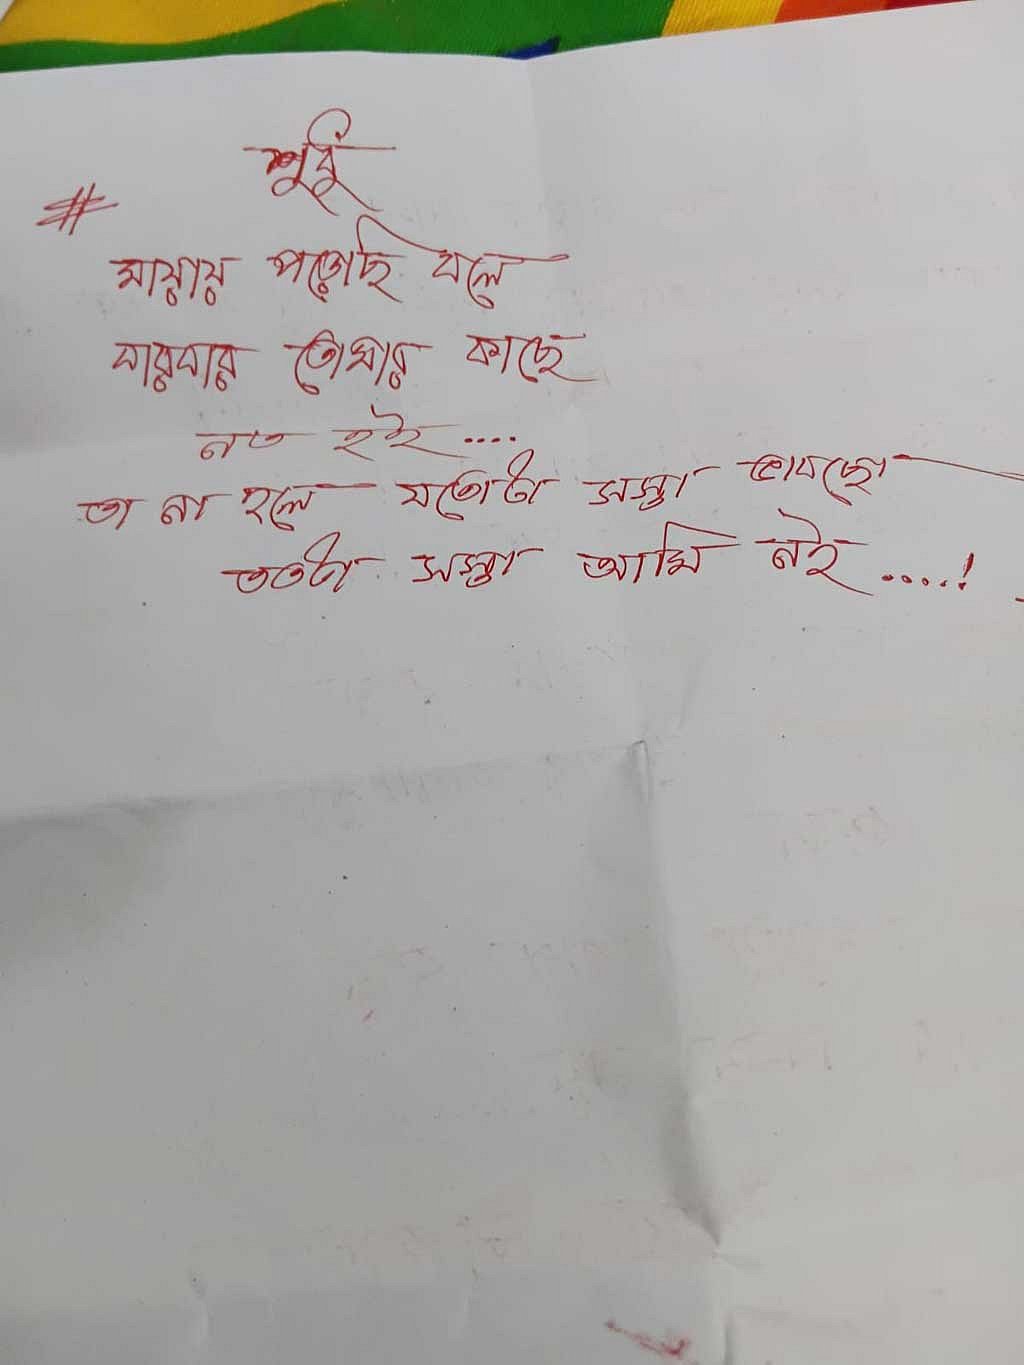 শুধু
#
মায়ায় পড়েছি বলে
বারবার তোমার কাছে
নত হই ....
তা না হলে যতোটা সস্তা ভাবছো
ততটা সস্তা আমি নই .....!